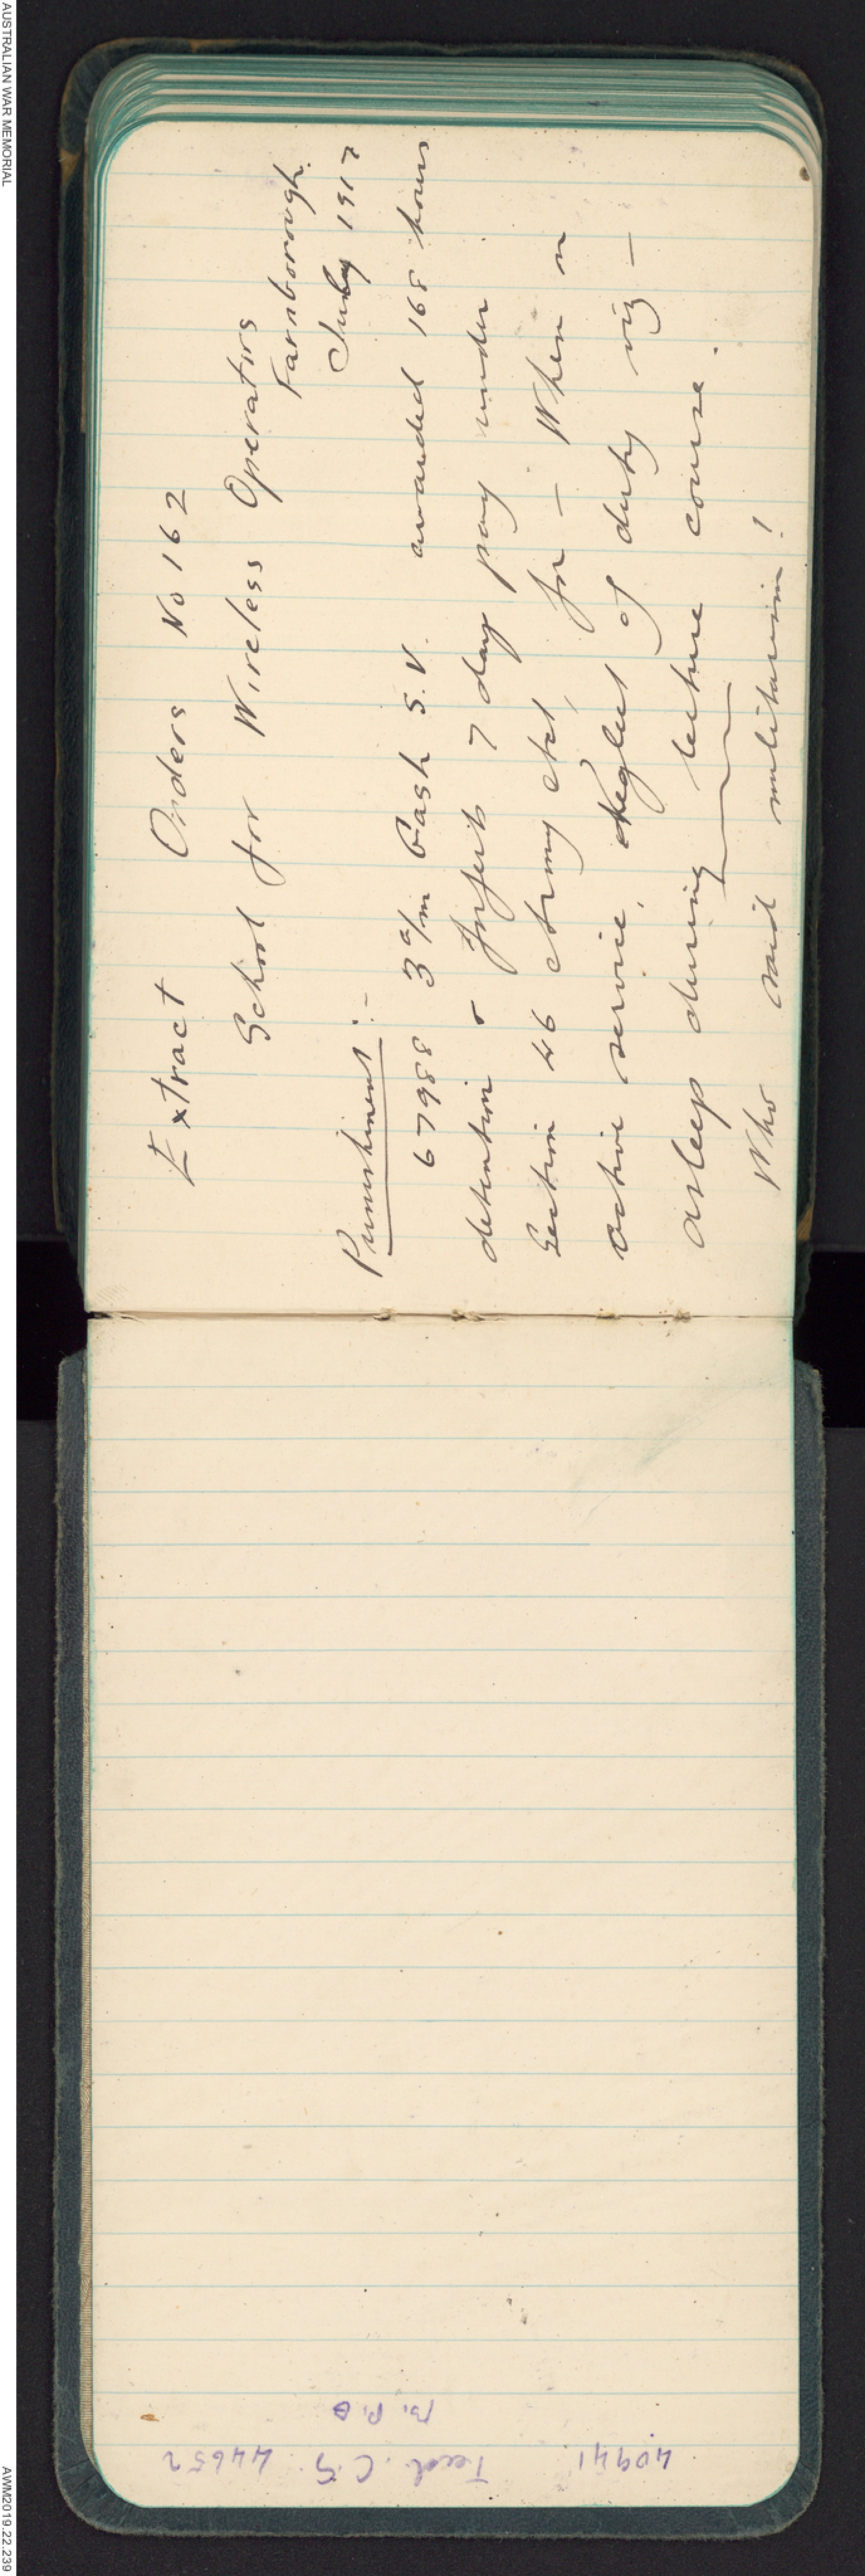 AUSTRALIAN WAR MEMORIAL
Extract Orders No 162
School for Wireless Operators
Farnborough.
July 1917
Punishment :-
67988 3 a/m Cash S.V. awarded 168 hours
detention & forfeits 7 day pay under
Section 46 Army Act, for — When on
active service, Neglect of duty viz —
asleep during lecture course.
Who said militarism!
B.
40941 C.S. 44652
AWM2019.22.239